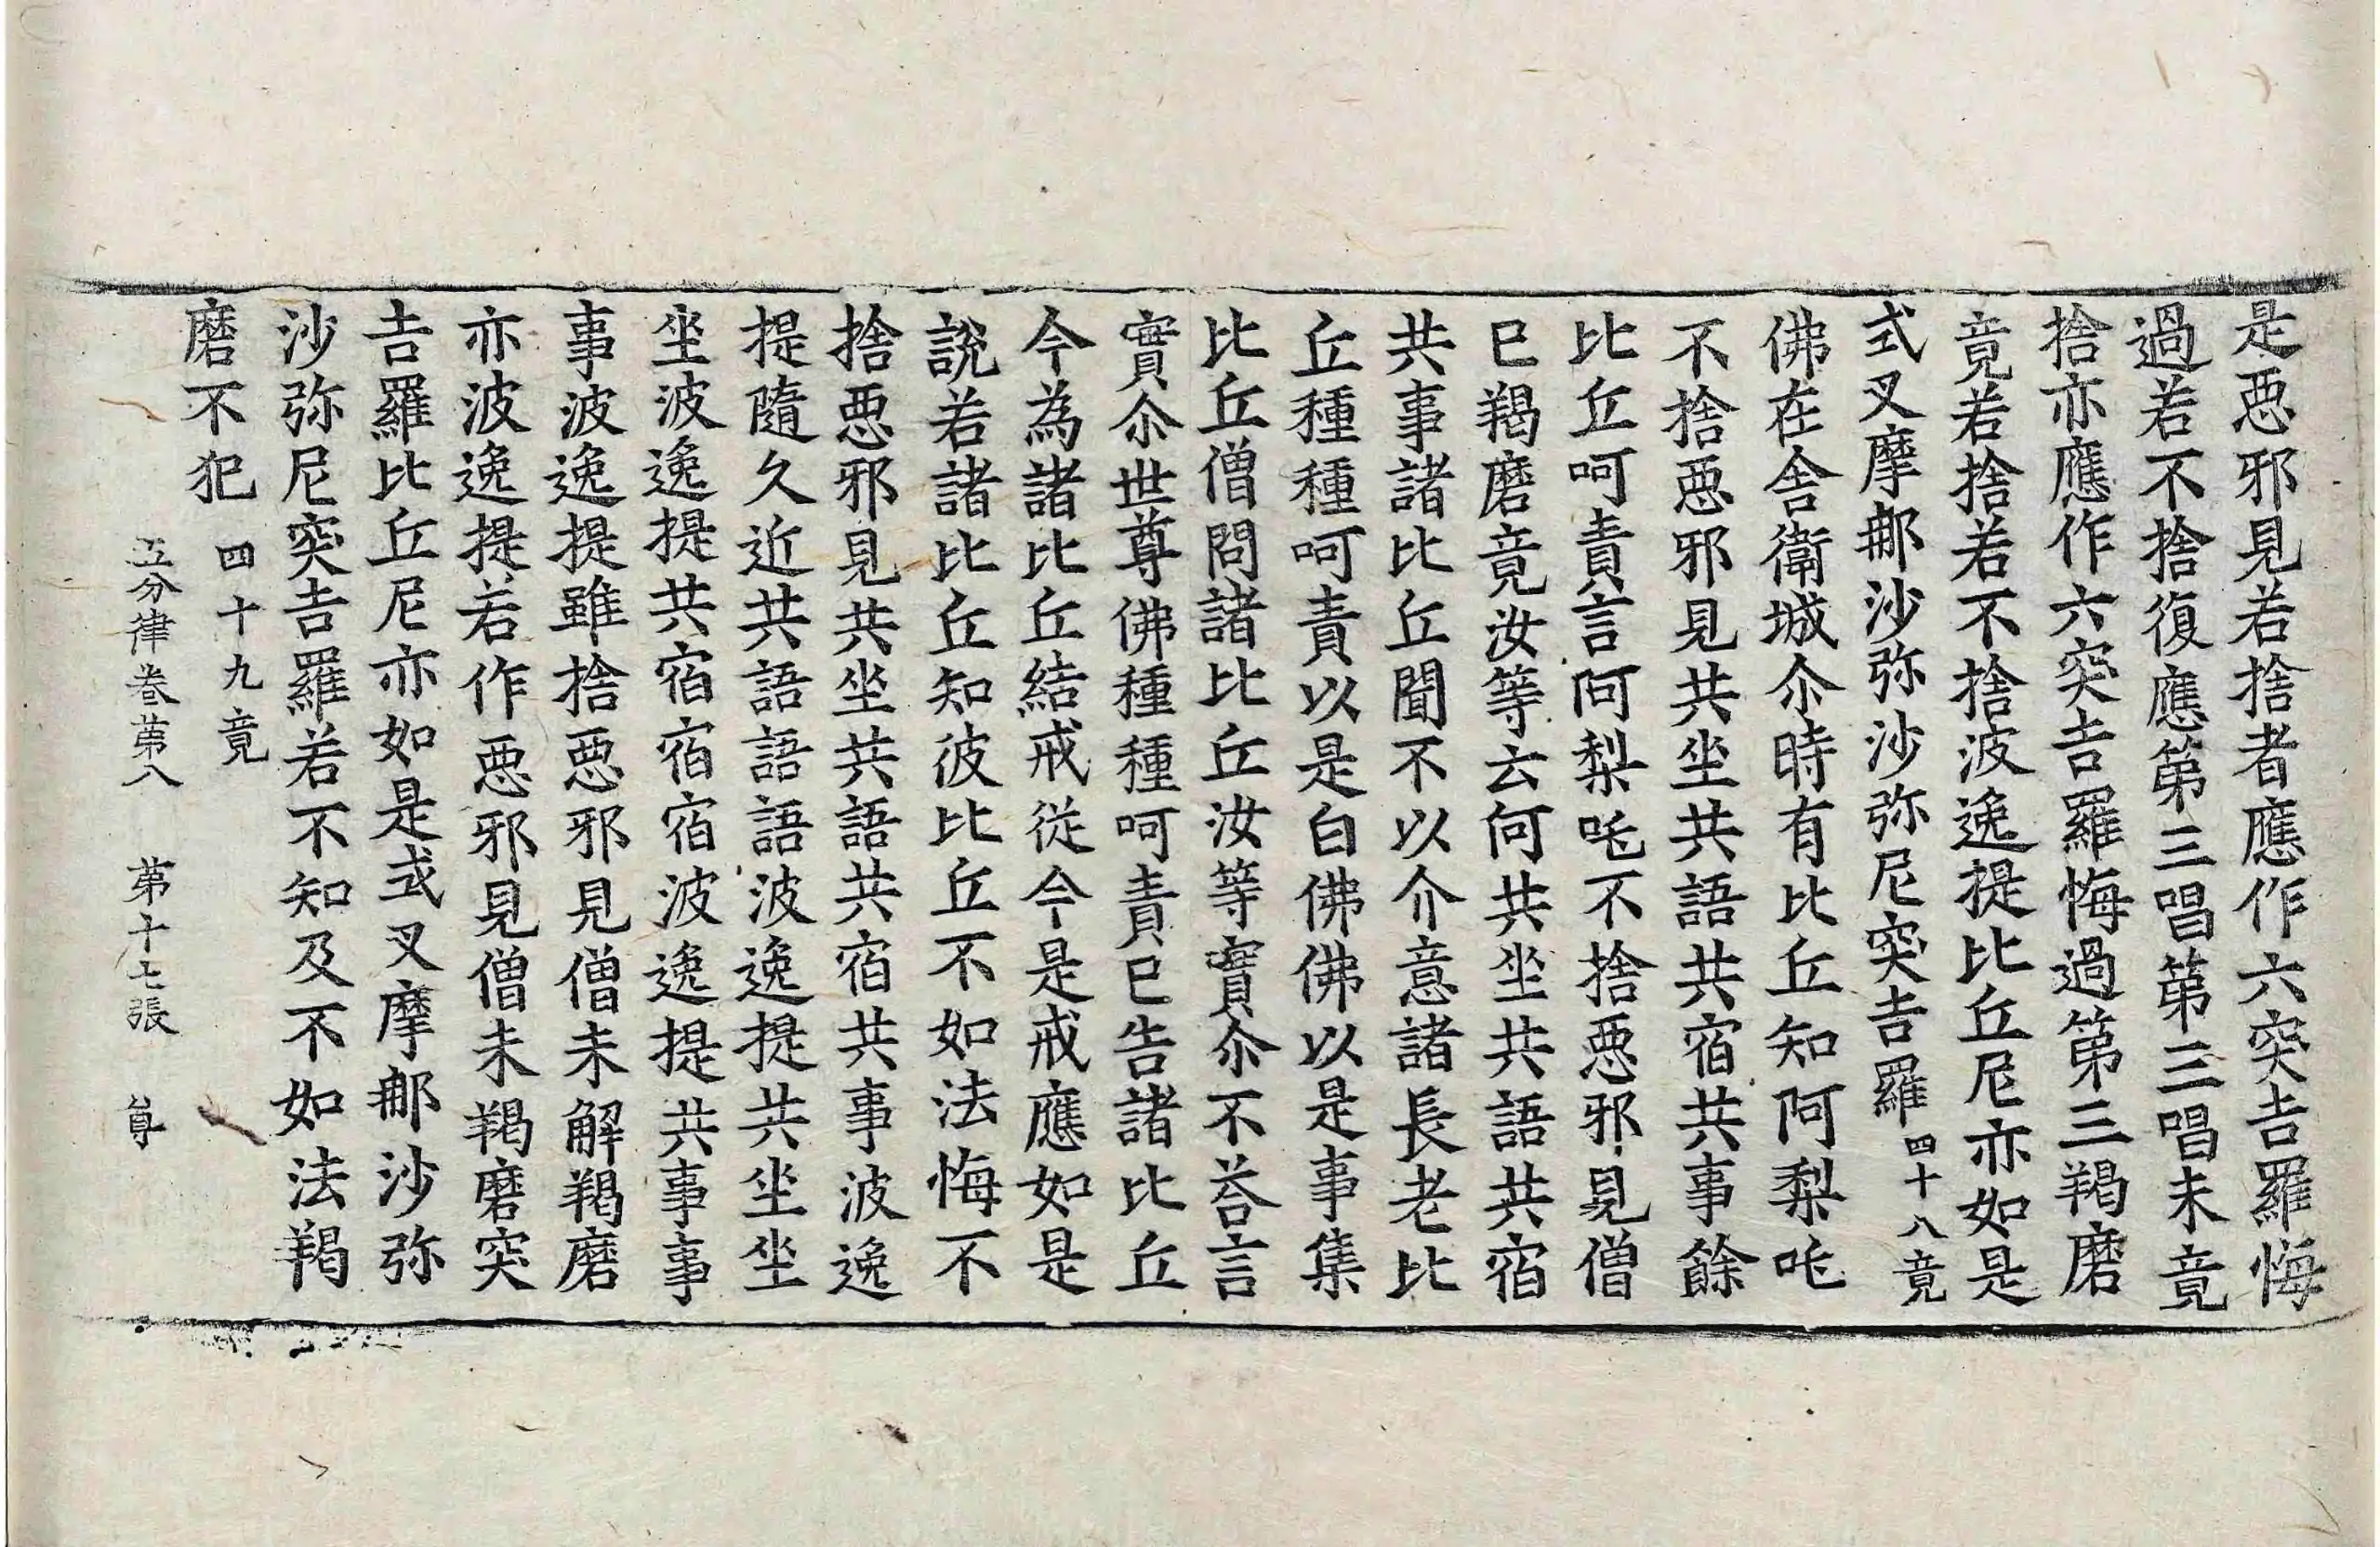 是惡邪見若捨者應作六突吉羅悔
過若不捨復應第三唱第三唱未竟
捨亦應作六突吉羅悔過第三羯磨
竟若捨若不捨波逸提比丘尼亦如是
式叉摩那沙弥沙弥尼突吉羅四十八竟
佛在舍衛城尒時有比丘知阿梨吒
不捨惡邪見共坐共語共宿共事餘
比丘呵責言阿梨吒不捨惡邪見僧
已羯磨竟汝等云何共坐共語共宿
共事諸比丘聞不以介意諸長老比
丘種種呵責以是白佛佛以是事集
比丘僧問諸比丘汝等實尒不荅言
實尒世尊佛種種呵責已告諸比丘
今為諸比丘結戒從今是戒應如是
說若諸比丘知彼比丘不如法悔不
捨惡邪見共坐共語共宿共事波逸
提隨久近共語語語波逸提共坐坐
坐波逸提共宿宿宿波逸提共事事
事波逸提雖捨惡邪見僧未解羯磨
亦波逸提若作惡邪見僧未羯磨突
吉羅比丘尼亦如是式叉摩那沙弥
沙弥尼突吉羅若不知及不如法羯
磨不犯 四十九竟
五分律卷第八 第十七張 尊